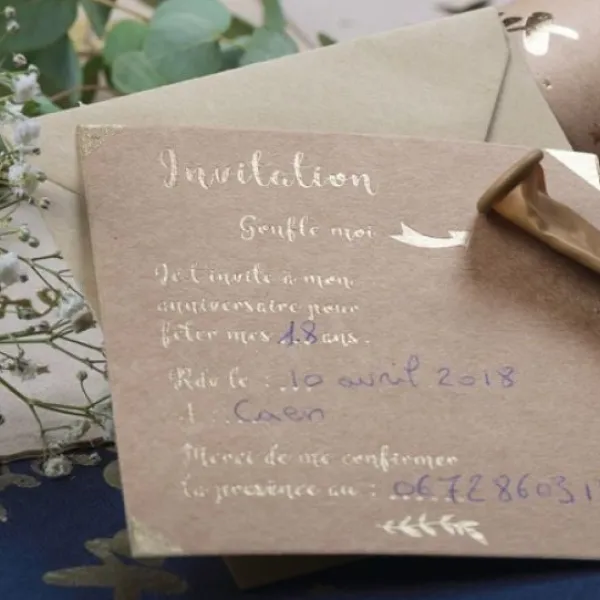 Invitation
Gonfle moi
Je t'invite à mon
anniversaire pour
fêter mes 18 ans.
Rdv le : 10 avril 2018
À : Caen
Merci de me confirmer
ta présence au : 067286031